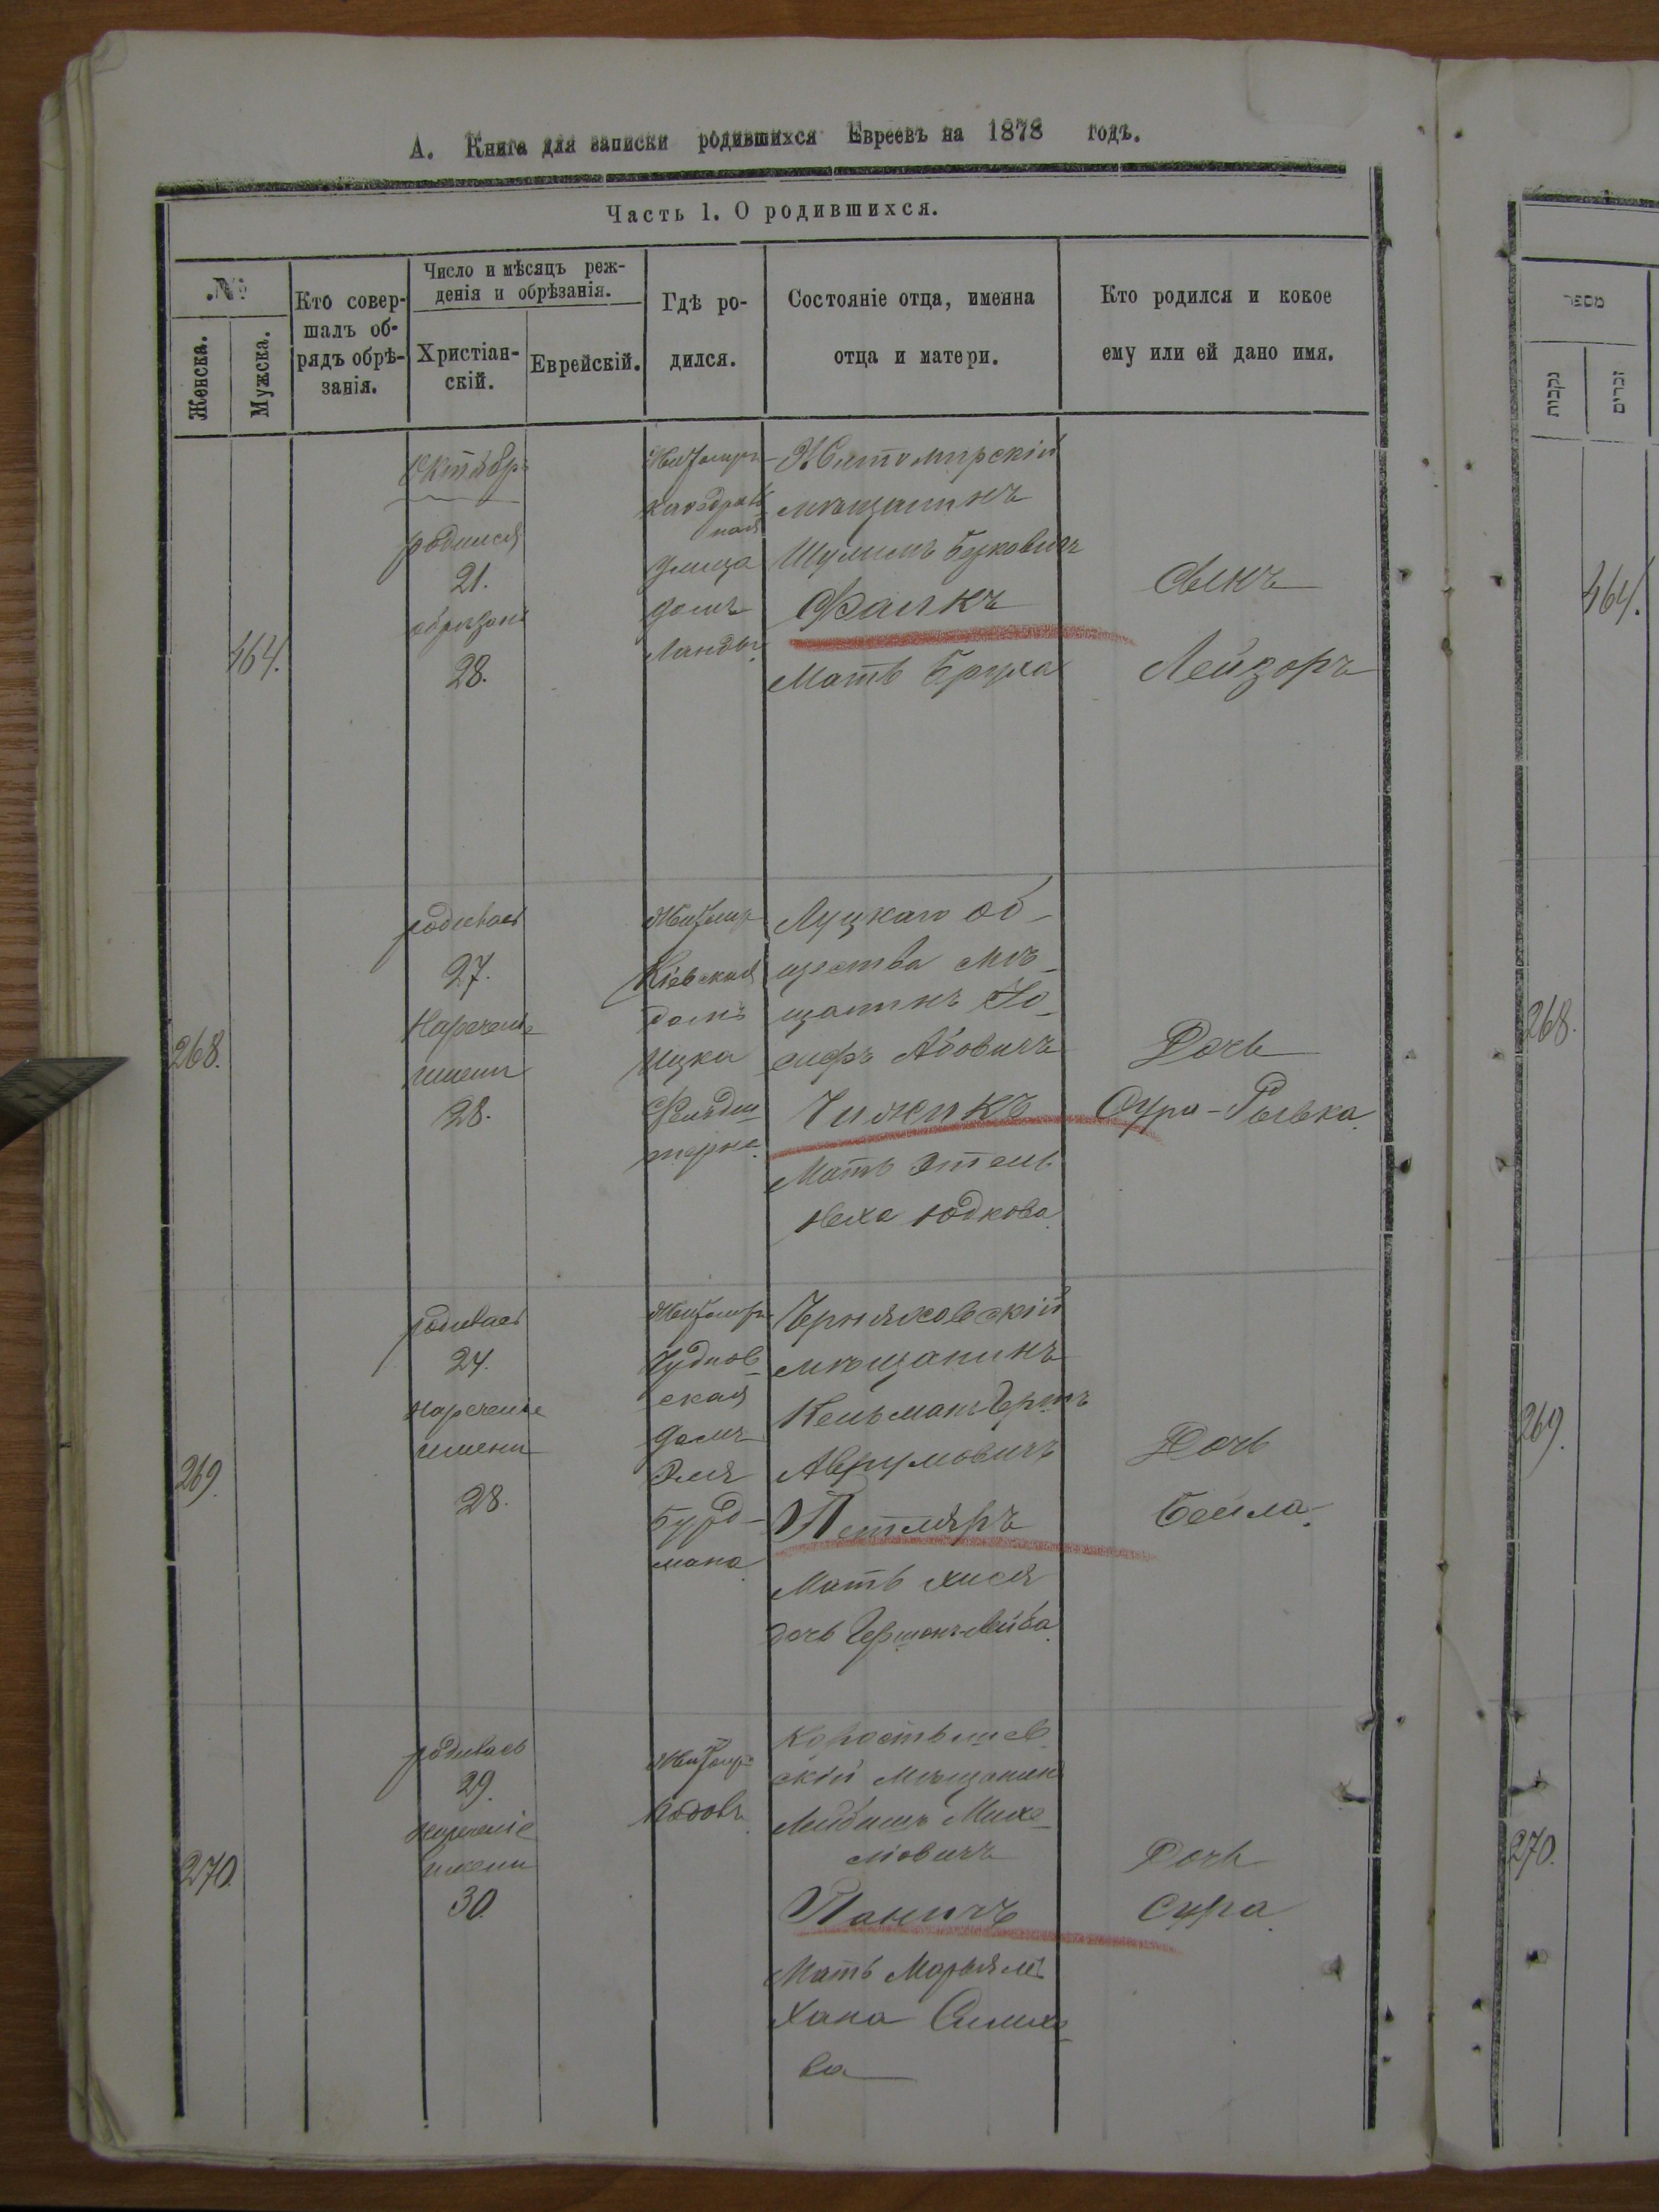 А. Книга для записки родившихся Евреевъ на 1878 годъ.
Часть 1. О родившихся.
№
Женска.
Мужска.
Кто совер-
шалъ об-
рядъ обрѣ-
занія.
Число и мѣсяцъ реж-
денія и обрѣзанія.
Христіан-
скій.
Еврейскій.
Гдѣ ро-
дился.
Состояніе отца, именна
отца и матери.
Кто родился и кокое
ему или ей дано имя.
464.
Октябрь
родился
21.
обрѣзанъ
28.
Житомиръ
Каѳедраль
ная
улица
домъ
Ланды
Житомирскій
мѣщанинъ
Шулимъ Ицковичъ
Фалкъ
Мать Бруха
Сынъ
Лейзоръ
268.
родилась
27.
Нареченіе
имени
28.
Житомир
Кіевская
домъ
Ицка
Фельдш
Луцкаго об-
щества мѣ-
щанинъ Іо-
сифъ Абовичъ
Чижикъ
Мать Этель
Неха Юдкова
Дочь
Сура-Рывка.
269.
родилась
24.
нареченіе
имени
28.
Житомиръ
Чуднов
ская
домъ
Эля
Бурд-
мана
Черняховскій
мѣщанинъ
Кельман-Герш
Аврумовичъ
Петляръ
Мать Хися
дочь Гершонъ-Лейба
Дочь
Бейла.
270.
родилась
29.
нареченіе
имени
30.
Житомир
Коростышев
скій мѣщанинъ
Лейбишъ Михе
лювичъ
Паничъ
Мать Марьямъ
Хана Симхо
ва
Дочь
Сура.
מספר
נקבות
זכרים
464.
268.
269.
270.